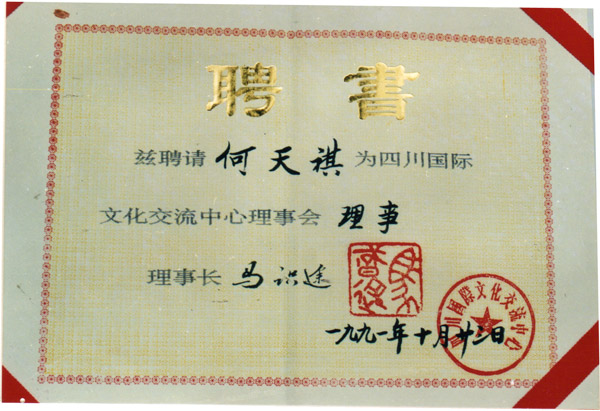 聘書
兹聘请何天祺为四川国际
文化交流中心理事会理事
理事长 马识途
四川國際文化交流中心
一九九一年十月廿三日